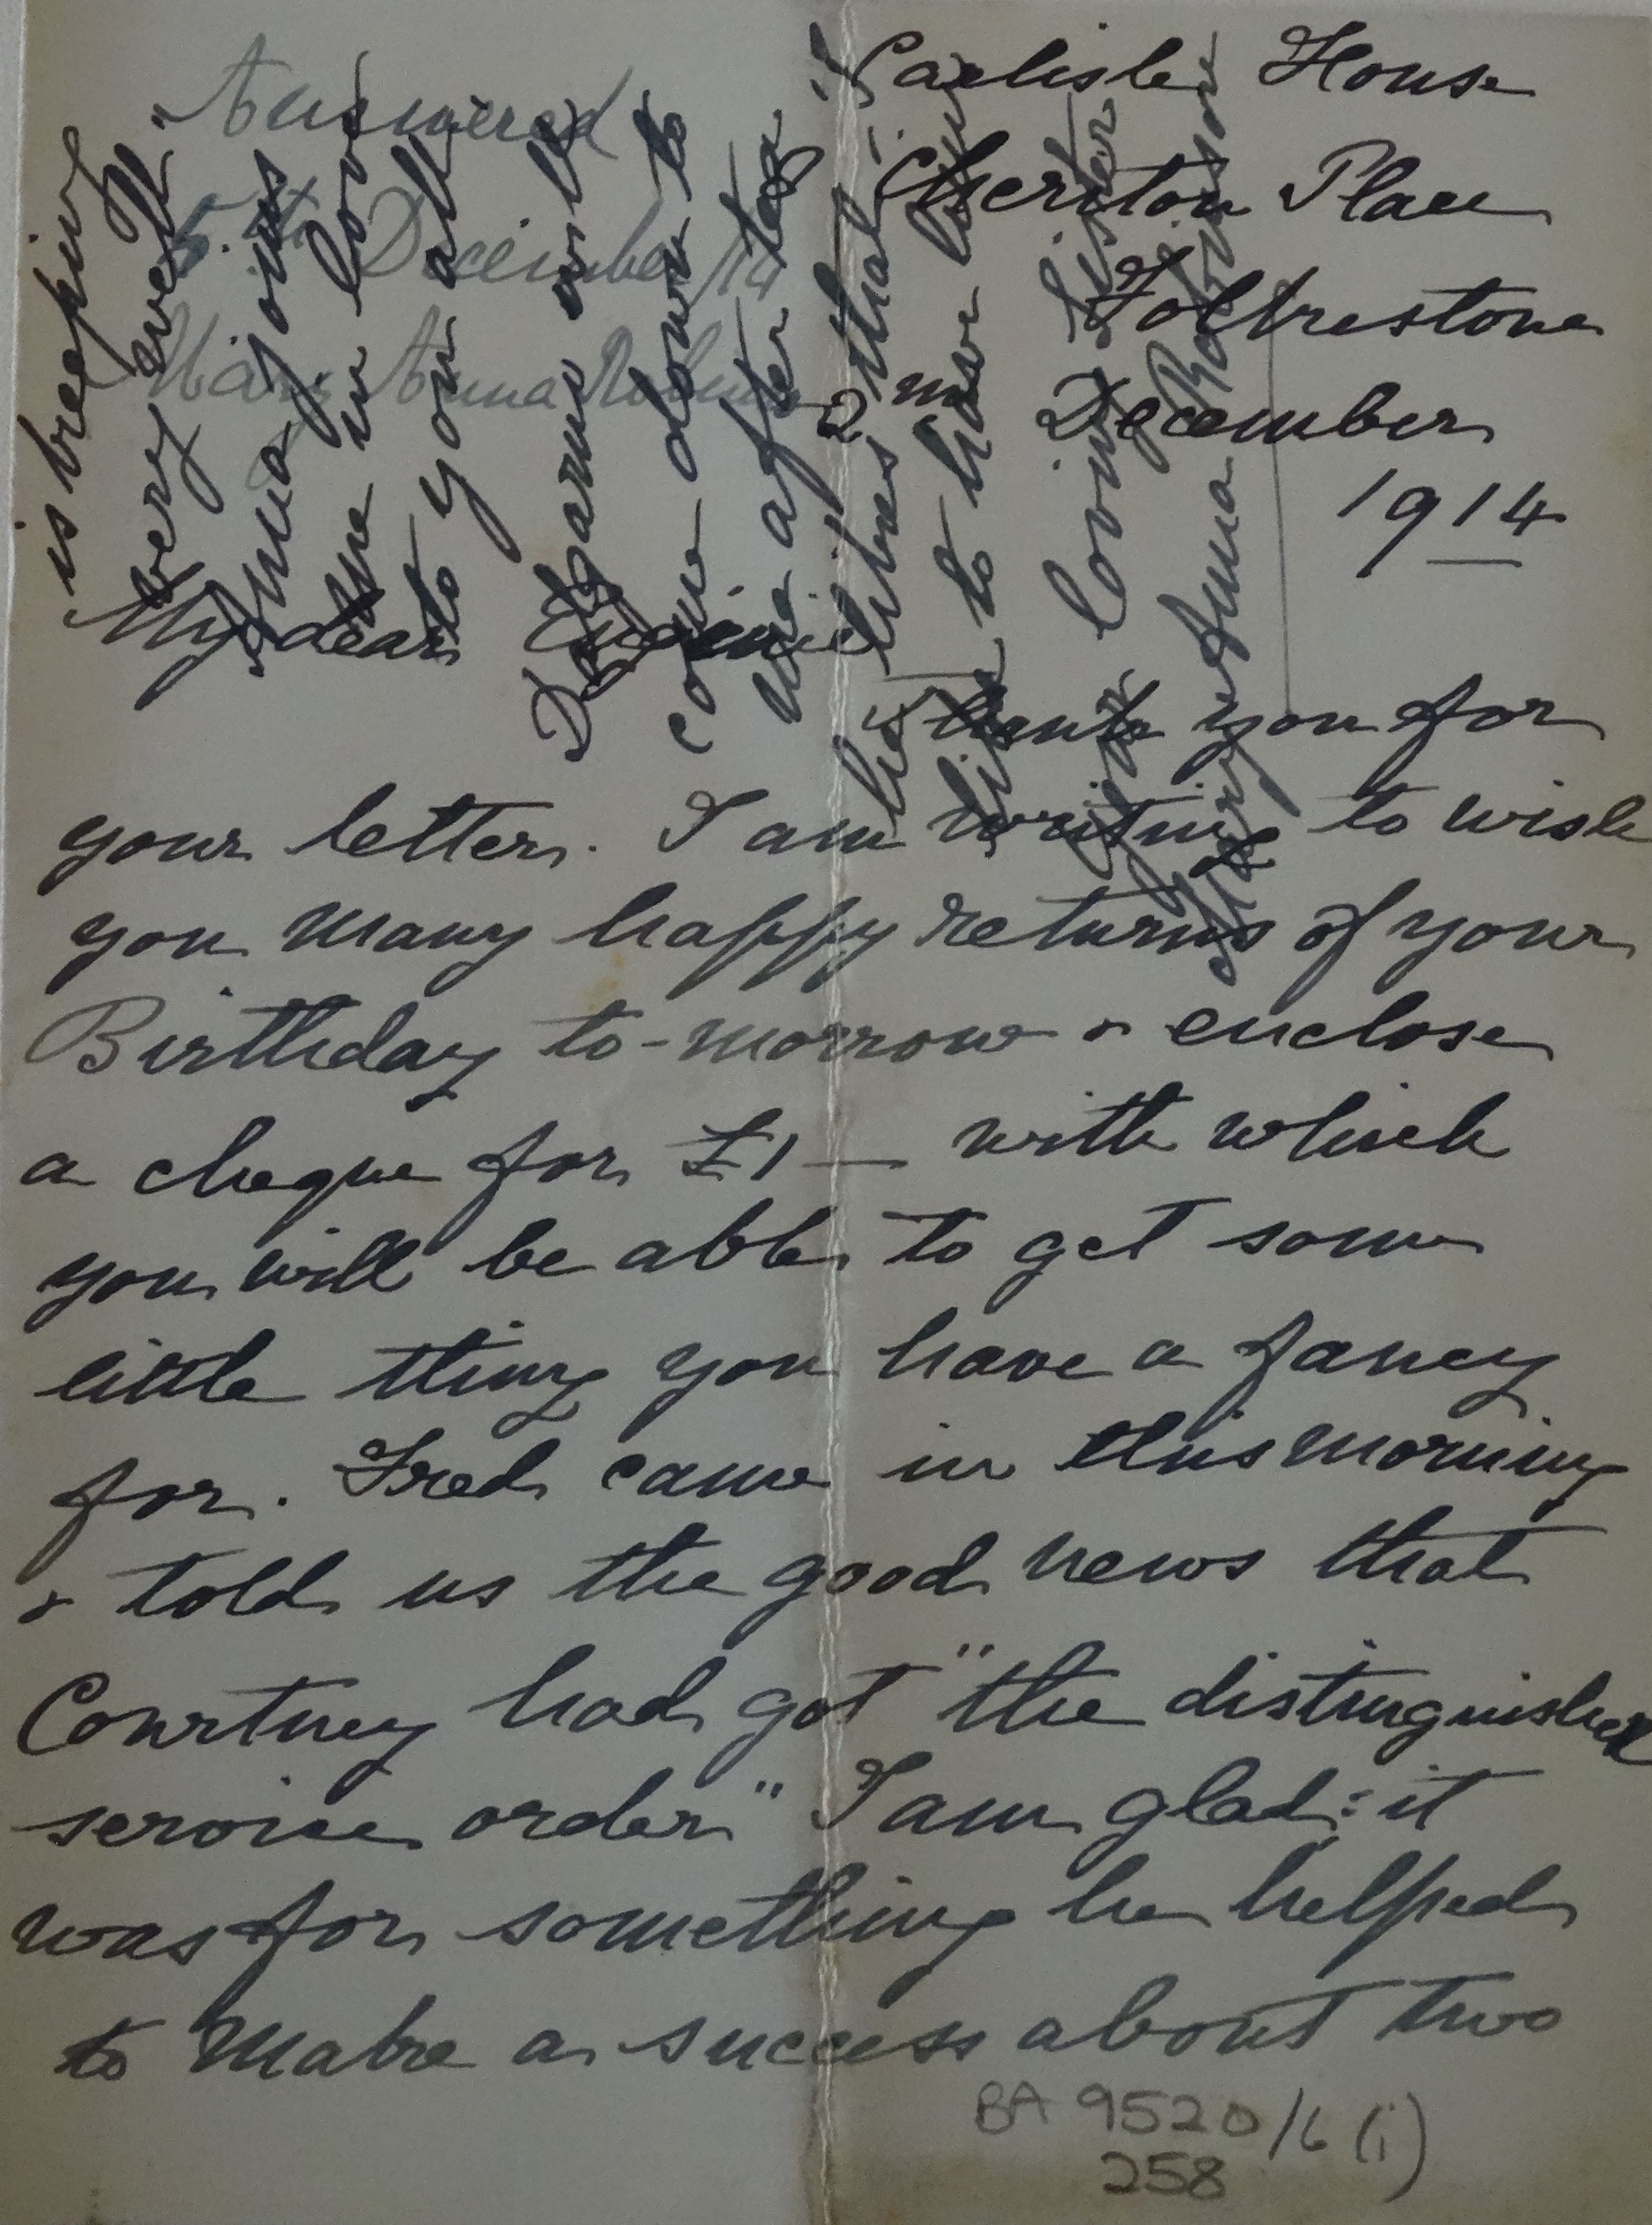 Carlisle House
Cheriton Place
Folkestone
2nd December
1914
Answered
5th December /14
Mary Anna Robinson
My dear Eugenie
Thank you for
your letter. I am writing to wish
you many happy returns of your
Birthday to-morrow & enclose
a cheque for £1— with which
you will be able to get some
little thing you have a fancy
for. Fred came in this morning
& told us the good news that
Courtney had got "the distinguished
service order" I am glad: it
was for something he helped
to make a success about two
is keeping
very well"
Anna joins
me in love
to you all
Durham will
come down to
us after tea
he likes that
like to have
Your loving Sister
Mary Anna Robinson
BA 9520/6 (i)
258